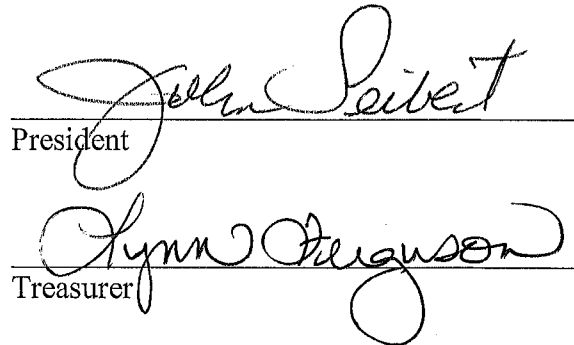 John Seibert
President
Lynn Ferguson
Treasurer